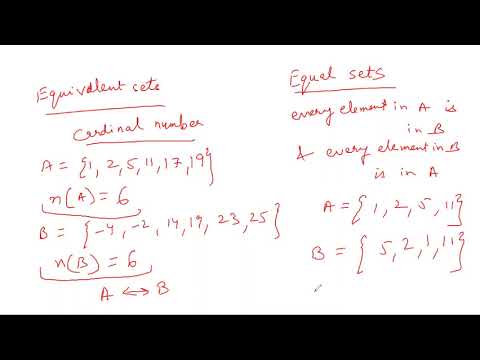 Equivalent sets
Cardinal number
A = {1, 2, 5, 11, 17, 19}
n(A) = 6
B = {-4, -2, 14, 19, 23, 25}
n(B) = 6
A ↔ B
Equal sets
every element in A is
in B
& every element in B
is in A
A = {1, 2, 5, 11}
B = {5, 2, 1, 11}